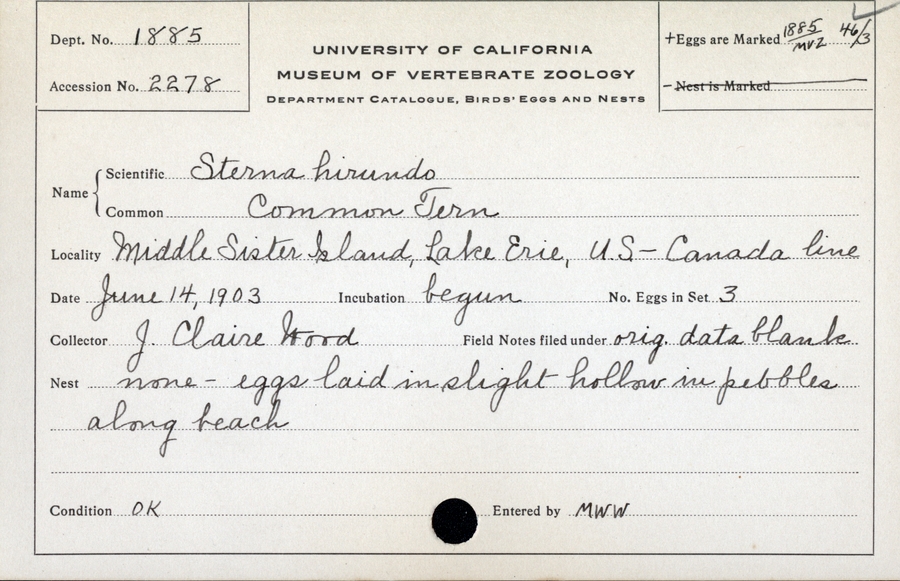 Dept. No. 1885
Accession No. 2278
UNIVERSITY OF CALIFORNIA
MUSEUM OF VERTEBRATE ZOOLOGY
DEPARTMENT CATALOGUE, BIRDS' EGGS AND NESTS
+Eggs are Marked 1885/MVZ 46/3
- Nest is Marked
Name { Scientific Sterna hirundo
Common Common Tern
Locality Middle Sister Island, Lake Erie, U.S - Canada line
Date June 14, 1903 Incubation begun No. Eggs in Set 3
Collector J. Claire Wood Field Notes filed under orig. data blank
Nest none - eggs laid in slight hollow in pebbles
along beach
Condition OK Entered by MWW